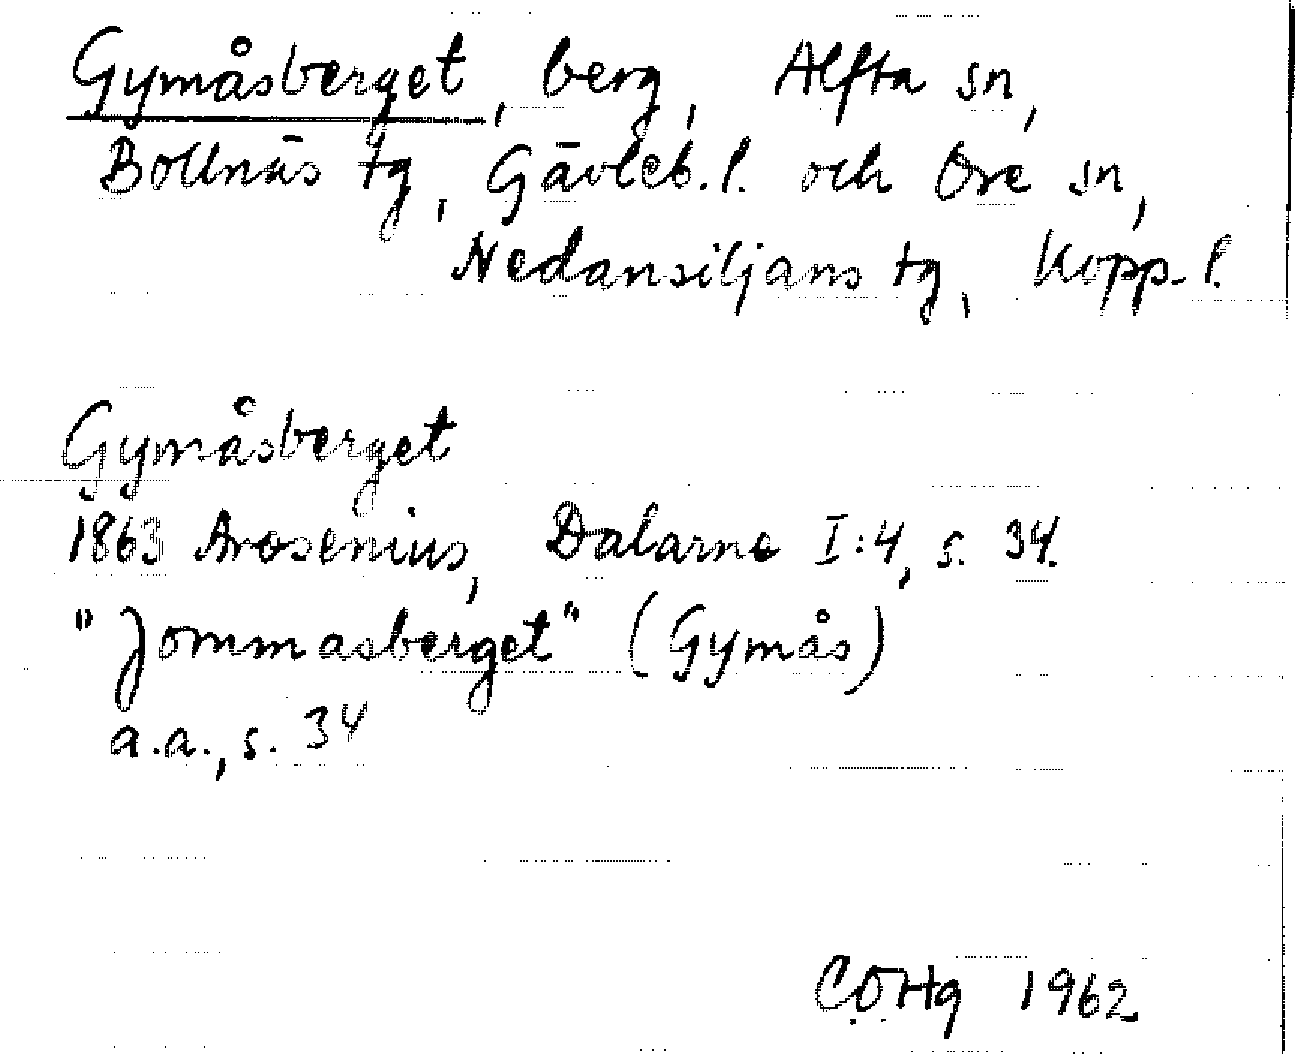 Gymåsberget, berg, Alfta sn,
Bollnäs tg, Gävleb. l. och Ore sn,
Nedansiljans tg, Kopp. l.
Gymåsberget
1863 Arosenius, Dalarne I:4, s. 34.
"Jommasberget" (Gymås)
a.a., s. 34
C.O.Hg 1962